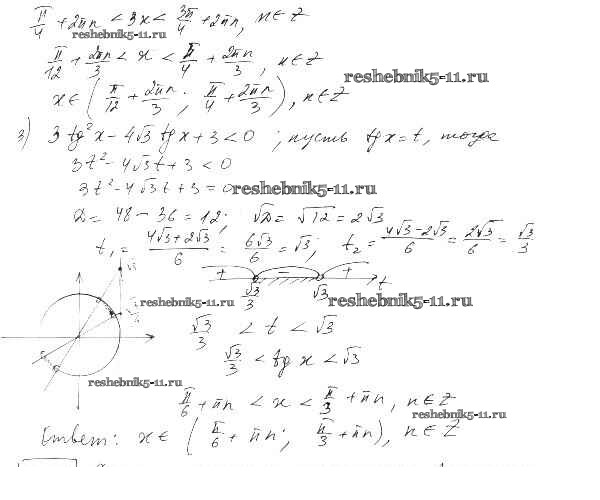 π/4 + 2πn < 3x < 3π/4 + 2πn, n∈Z
reshebnik5-11.ru
π/12 + 2πn/3 < x < π/4 + 2πn/3, n∈Z
reshebnik5-11.ru
x∈(π/12 + 2πn/3; π/4 + 2πn/3), n∈Z
3) 3tg²x - 4√3 tgx + 3 < 0; пусть tgx = t, тогда
3t² - 4√3t + 3 < 0
3t² - 4√3t + 3 = 0
reshebnik5-11.ru
D = 48 - 36 = 12; √D = √12 = 2√3
t₁ = (4√3 + 2√3)/6 = 6√3/6 = √3; t₂ = (4√3 - 2√3)/6 = 2√3/6 = √3/3
+ - +
√3/3 √3 t
√3
reshebnik5-11.ru
reshebnik5-11.ru
√3/3 < t < √3
√3/3 < tg x < √3
reshebnik5-11.ru
π/6 + πn < x < π/3 + πn, n∈Z
reshebnik5-11.ru
Ответ: x∈(π/6 + πn; π/3 + πn), n∈Z